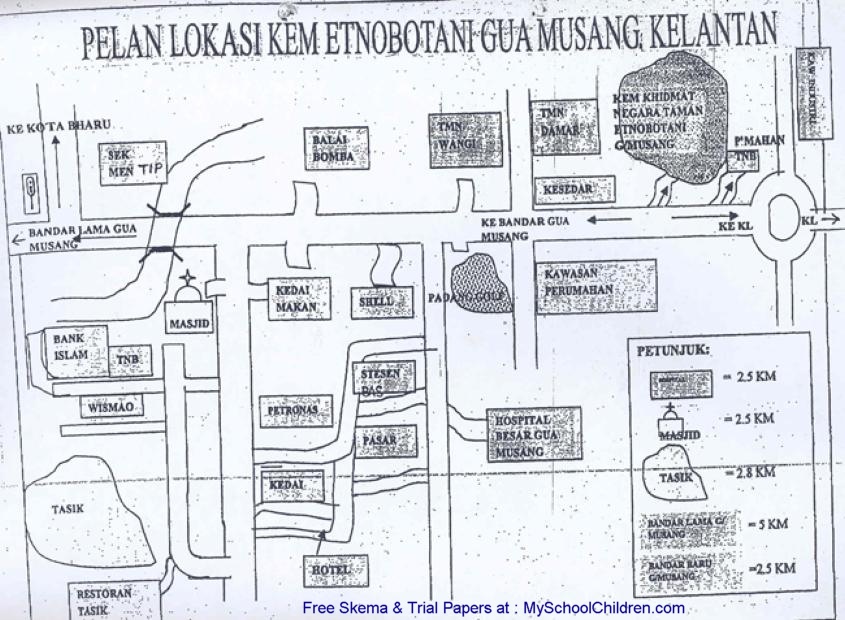 PELAN LOKASI KEM ETNOBOTANI GUA MUSANG, KELANTAN
KE KOTA BHARU
SEK
MEN TIP
BALAI
BOMBA
TMN
WANGI
TMN
DAMAI
KEM KHIDMAT
NEGARA TAMAN
ETNOBOTANI
G/MUSANG
P'MAHAN
TNB
KESEDAR
BANDAR LAMA GUA
MUSANG
KE BANDAR GUA
MUSANG
KE KL
KL
MASJID
KEDAI
MAKAN
SHELL
PADANG GOLF
KAWASAN
PERUMAHAN
BANK
ISLAM
TNB
WISMAO
STESEN
BAS
PETRONAS
PASAR
HOSPITAL
BESAR GUA
MUSANG
KEDAI
TASIK
HOTEL
RESTORAN
TASIK
PETUNJUK:
HOSPITAL = 2.5 KM
MASJID = 2.5 KM
TASIK = 2.8 KM
BANDAR LAMA G/
MUSANG = 5 KM
BANDAR BARU
G/MUSANG =2.5 KM
Free Skema & Trial Papers at : MySchoolChildren.com